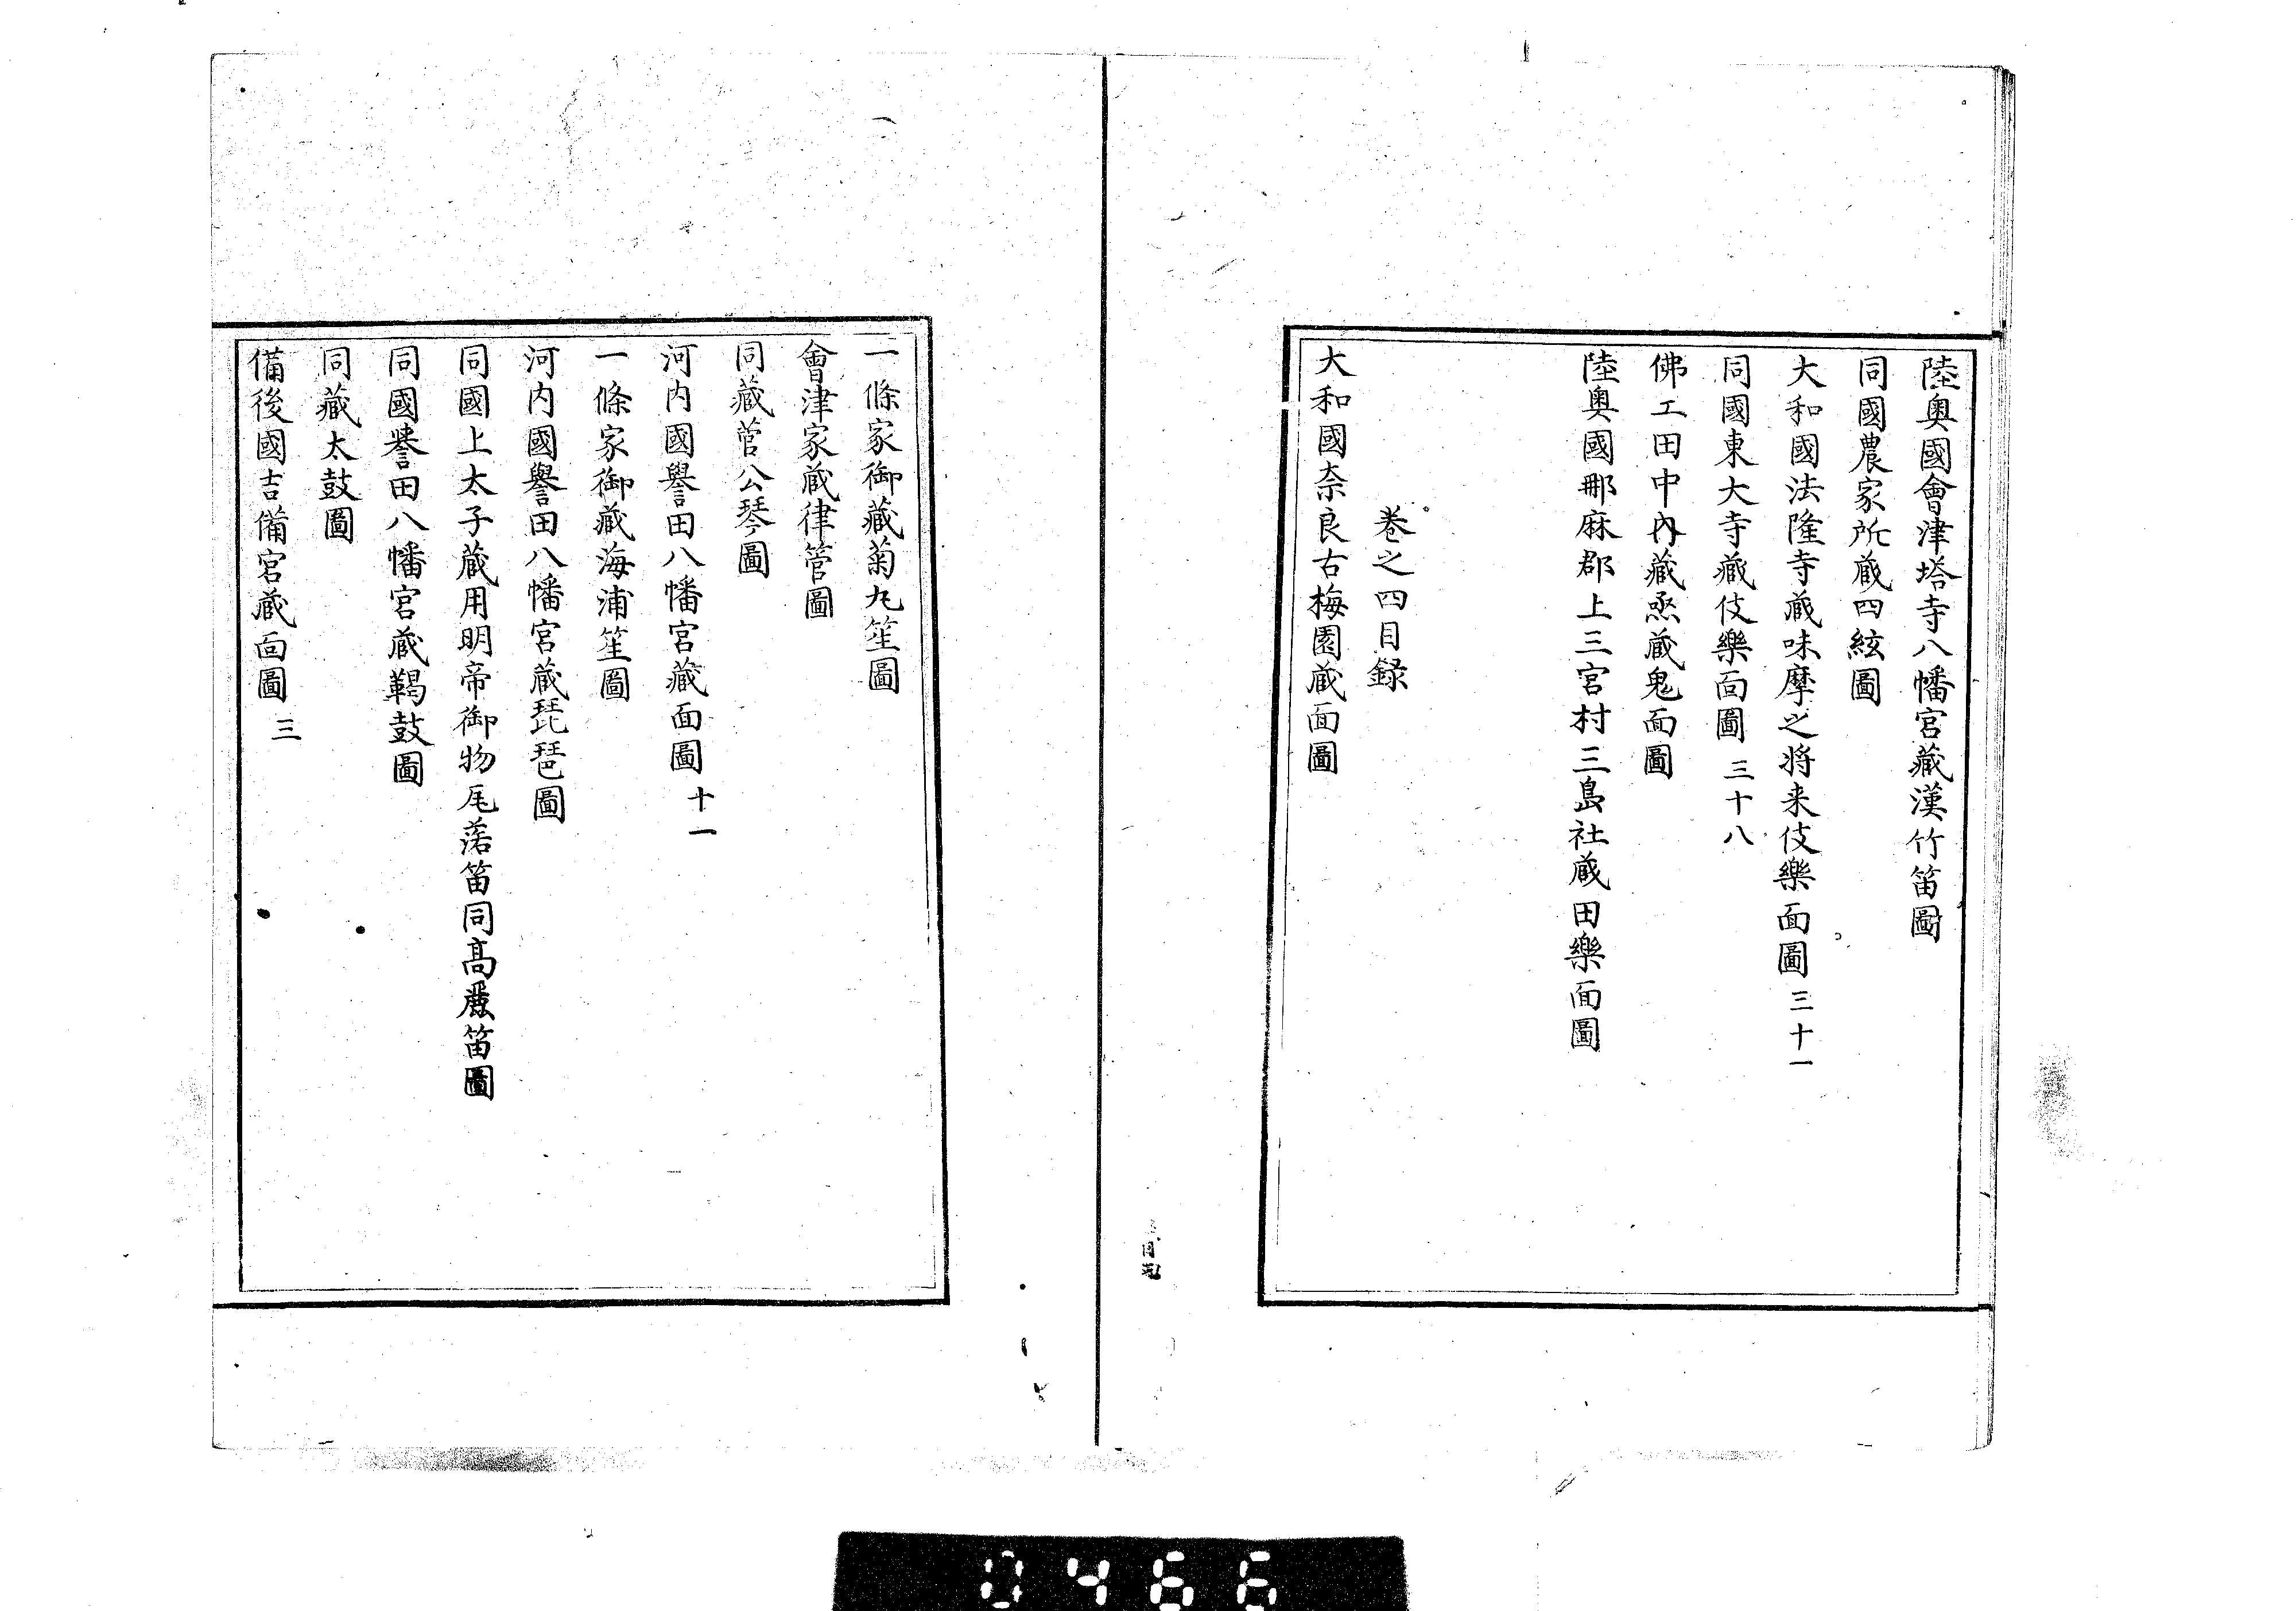 陸奥國會津塔寺八幡宮藏漢竹笛圖
同國農家所藏四絃圖
大和國法隆寺藏味摩之將来伎樂面圖 三十一
同國東大寺藏伎樂面圖 三十八
佛工田中內藏烝藏鬼面圖
陸奥國那麻郡上三宮村三島社藏田樂面圖
巻之四目録
大和國奈良古梅園藏面圖
一條家御藏菊丸笙圖
會津家藏律管圖
同藏菅公琴圖
河内國譽田八幡宮藏面圖 十一
一條家御藏海浦笙圖
河内國譽田八幡宮藏琵琶圖
同國上太子藏用明帝御物尾落笛同高麗笛圖
同國譽田八幡宮藏鞨鼓圖
同藏太鼓圖
備後國吉備宮藏面圖 三
0466